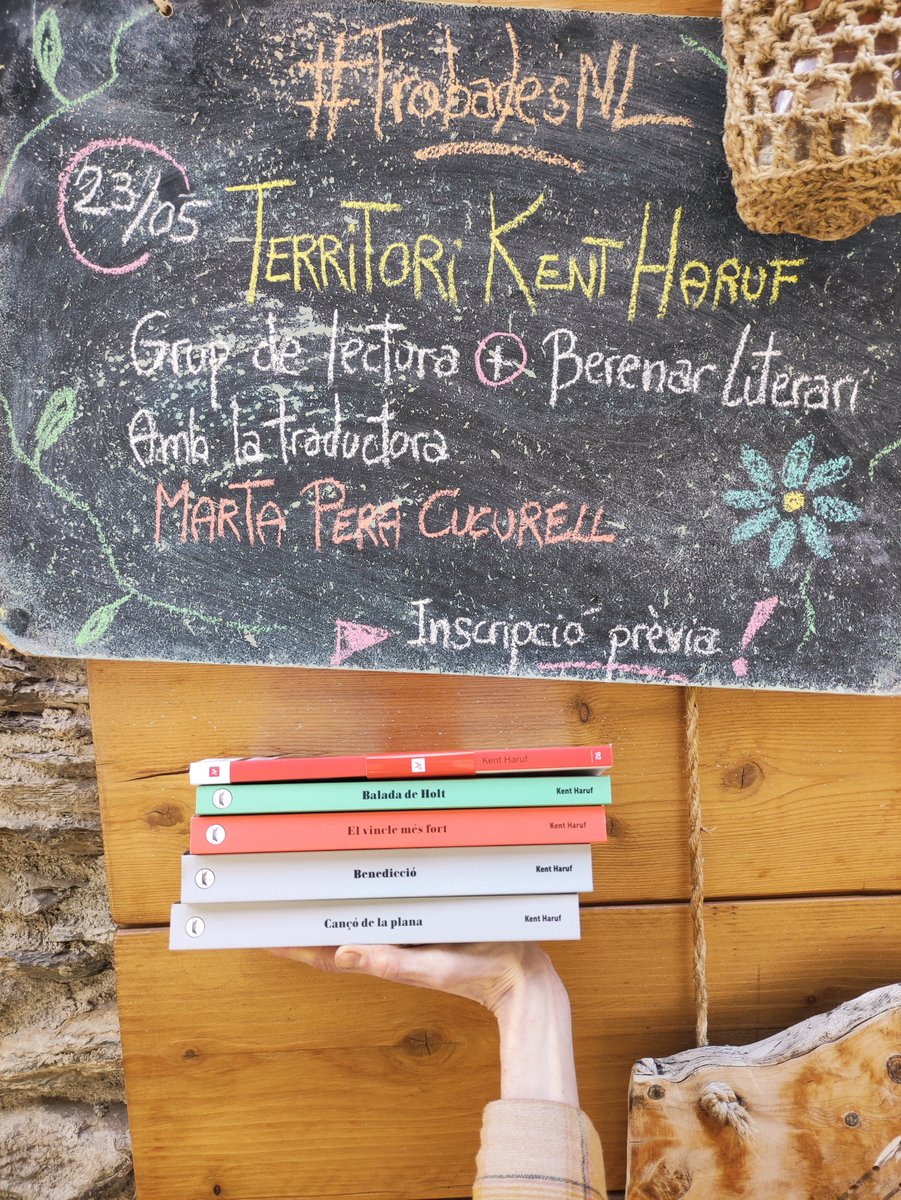 #TrobadesNL
23/05
TERRITORI KENT HARUF
Grup de lectura + Berenar Literari
Amb la traductora
MARTA PERA CUCURELL
Inscripció prèvia!
Kent Haruf 28
Balada de Holt Kent Haruf
El vincle més fort Kent Haruf
Benedicció Kent Haruf
Cançó de la plana Kent Haruf